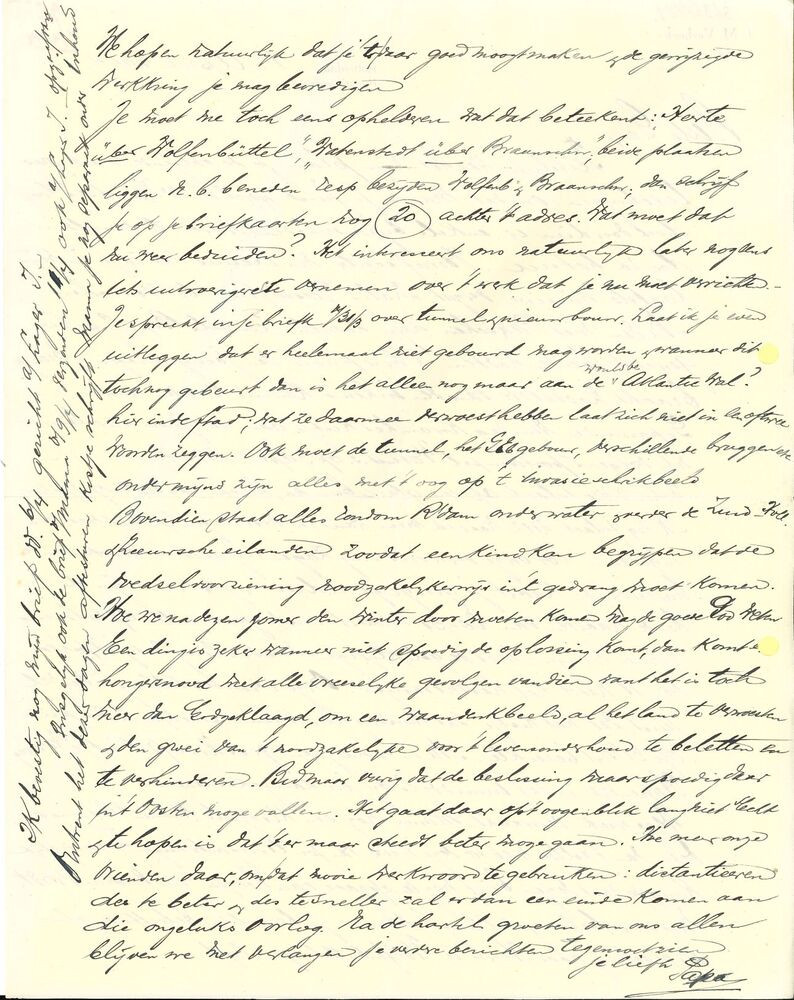 We hopen natuurlijk dat je 't daar goed moogt maken & de gewijzigde
werkkring je mag bevredigen
Je moet me toch eens ophelderen wat dat beteekent: Herte
über Wolfenbüttel", "Watenstedt über Braunschw", beide plaatsen
liggen n.b. beneden resp bezijden Wolfenb & Braunschw, dan schrijf
je op je briefkaarten nog 20 achter 't adres. Wat moet dat
nu weer beduiden? Het interesseert ons natuurlijk later nog eens
iets uitvoerigers te vernemen over 't werk dat je nu moet verrichten.-
Je spreekt in je briefk v/31/3 over tunnel & nieuwbouw. Laat ik je even
uitleggen dat er heelemaal niet gebouwd mag worden & wanneer dit
toch nog gebeurt dan is het alleen nog maar aan de would be "Atlantic Wal"?
hier in de stad; wat ze daarmee verwoest hebben laat zich niet in
woorden zeggen. Ook moet de tunnel, het gebouw, verschillende bruggen etc
ondermijnd zijn alles met 't oog op 't invasieschrikbeeld
Bovendien staat alles rondom R'dam onder water & verder de Zuid-Holl.
& Zeeuwsche eilanden zoodat een kind kan begrijpen dat de
voedselvoorziening noodzakelijkerwijs in 't gedrang moet komen.
Hoe we na dezen zomer den winter door moeten komen mag de goede God weten
Een ding is zeker wanneer niet spoedig de oplossing komt, dan komt er
hongersnood met alle vreeselijke gevolgen van dien want het is toch
meer dan Godgeklaagd, om een waandenkbeeld, al het land te verwoesten
& den groei van 't noodzakelijke voor 't levensonderhoud te beletten en
te verhinderen. Bid maar vurig dat de beslissing maar spoedig daar
in 't Oosten moge vallen. Het gaat daar op 't oogenblik lang niet slecht
& te hopen is dat 't er maar steeds beter moge gaan. Hoe meer onze
vrienden daar, om dat mooie werkwoord te gebruiken: distantieeren
des te beter & des te sneller zal er dan een einde komen aan
die ongeluks oorlog. Na de hartel. groeten van ons allen
blijven we met verlangen je verdere berichten tegemoet zien
je liefh Papa
Ik bevestig nog mijn brief dd. 6/4 gericht a/ Lager I.-
Insgelijk ook de brief v/ Mama v/ 9/4 verzonden 11/4 ook a/ Lager I.
Omtrent het dezer dagen afgestuurde kistje schrijft Mama je nog separaat over inhoud